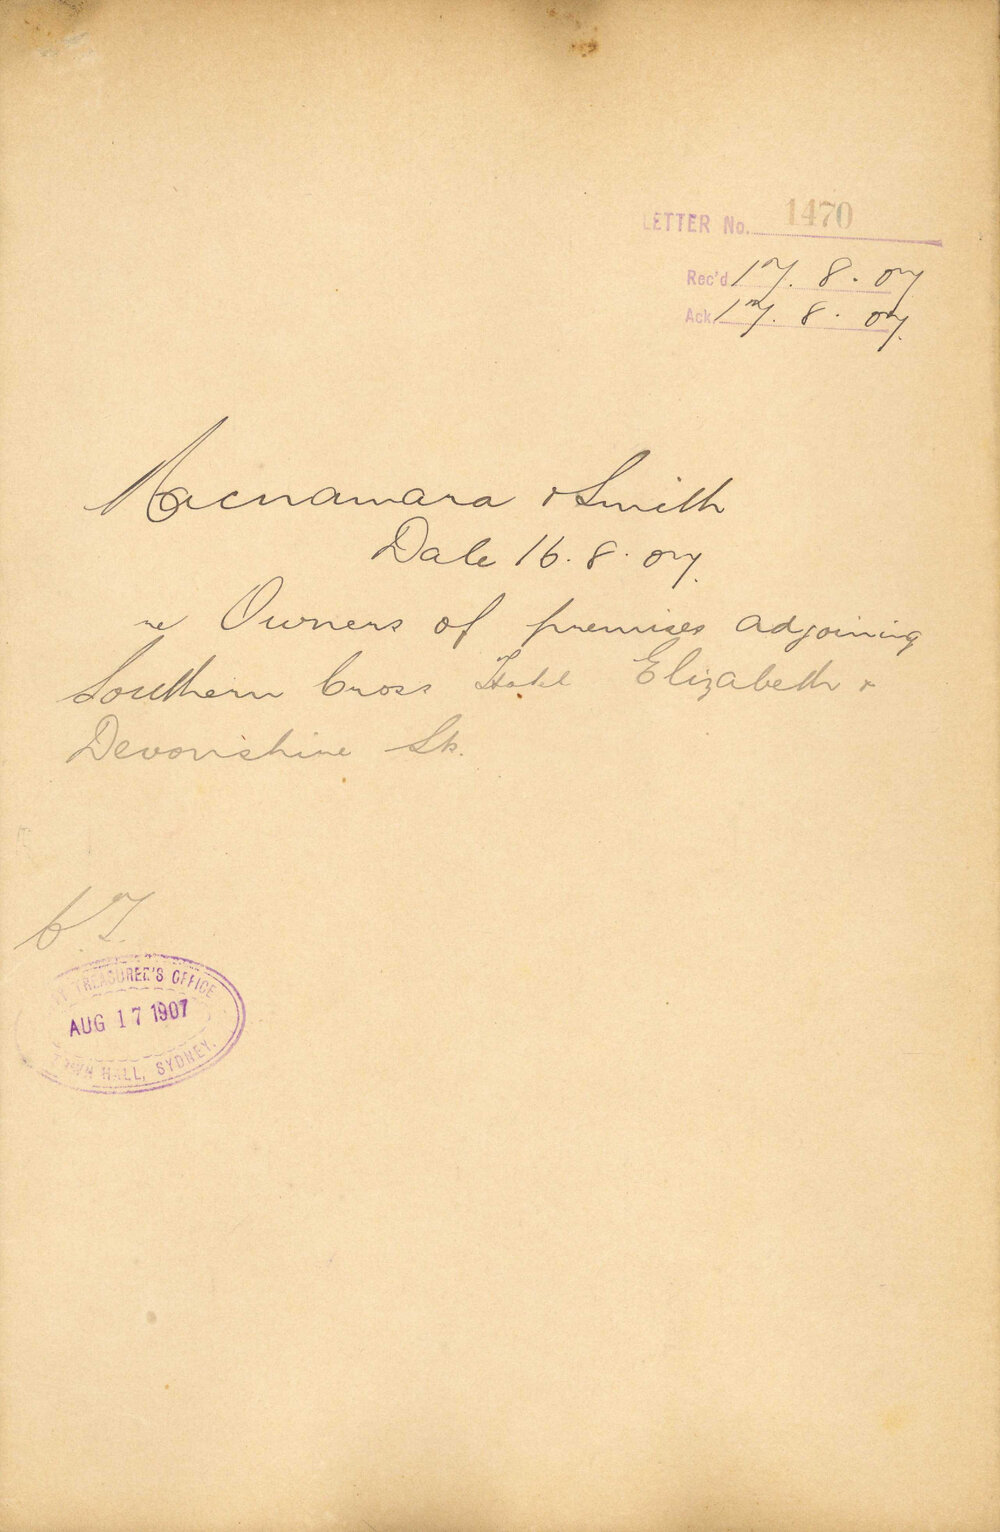 LETTER No. 1470
Rec'd 17. 8. 07
Ack. 17. 8. 07.
Macnamara & Smith
Date 16. 8. 07.
re Owners of premises adjoining
Southern Cross Hotel Elizabeth &
Devonshire Sts.
C.T.
TREASURER'S OFFICE
AUG 17 1907
TOWN HALL, SYDNEY.